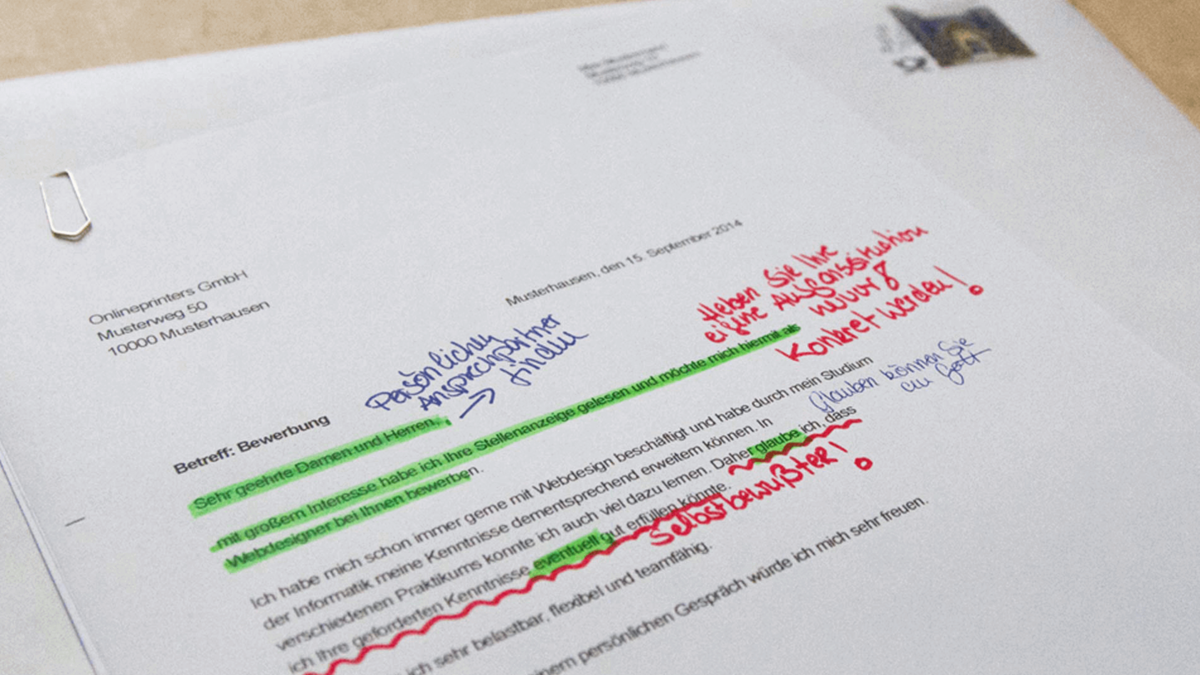 Musterhausen, den 15. September 2014
Onlineprinters GmbH
Musterweg 50
10000 Musterhausen
Persönlichen
Ansprechpartner
→ finden
Heben Sie Ihre
eigene
hervor!
Konkret werden!
Betreff: Bewerbung
Sehr geehrte Damen und Herren,
mit großem Interesse habe ich Ihre Stellenanzeige gelesen und möchte mich hiermit als
Webdesigner bei Ihnen bewerben.
Glauben können Sie
an Gott
Ich habe mich schon immer gerne mit Webdesign beschäftigt und habe durch mein Studium
der Informatik meine Kenntnisse dementsprechend erweitern können. In
verschiedenen Praktikums konnte ich auch viel dazu lernen. Daher glaube ich, dass
ich Ihre geforderten Kenntnisse eventuell gut erfüllen könnte.
Selbstbewußter!
ich sehr belastbar, flexibel und teamfähig.
einem persönlichen Gespräch würde ich mich sehr freuen.